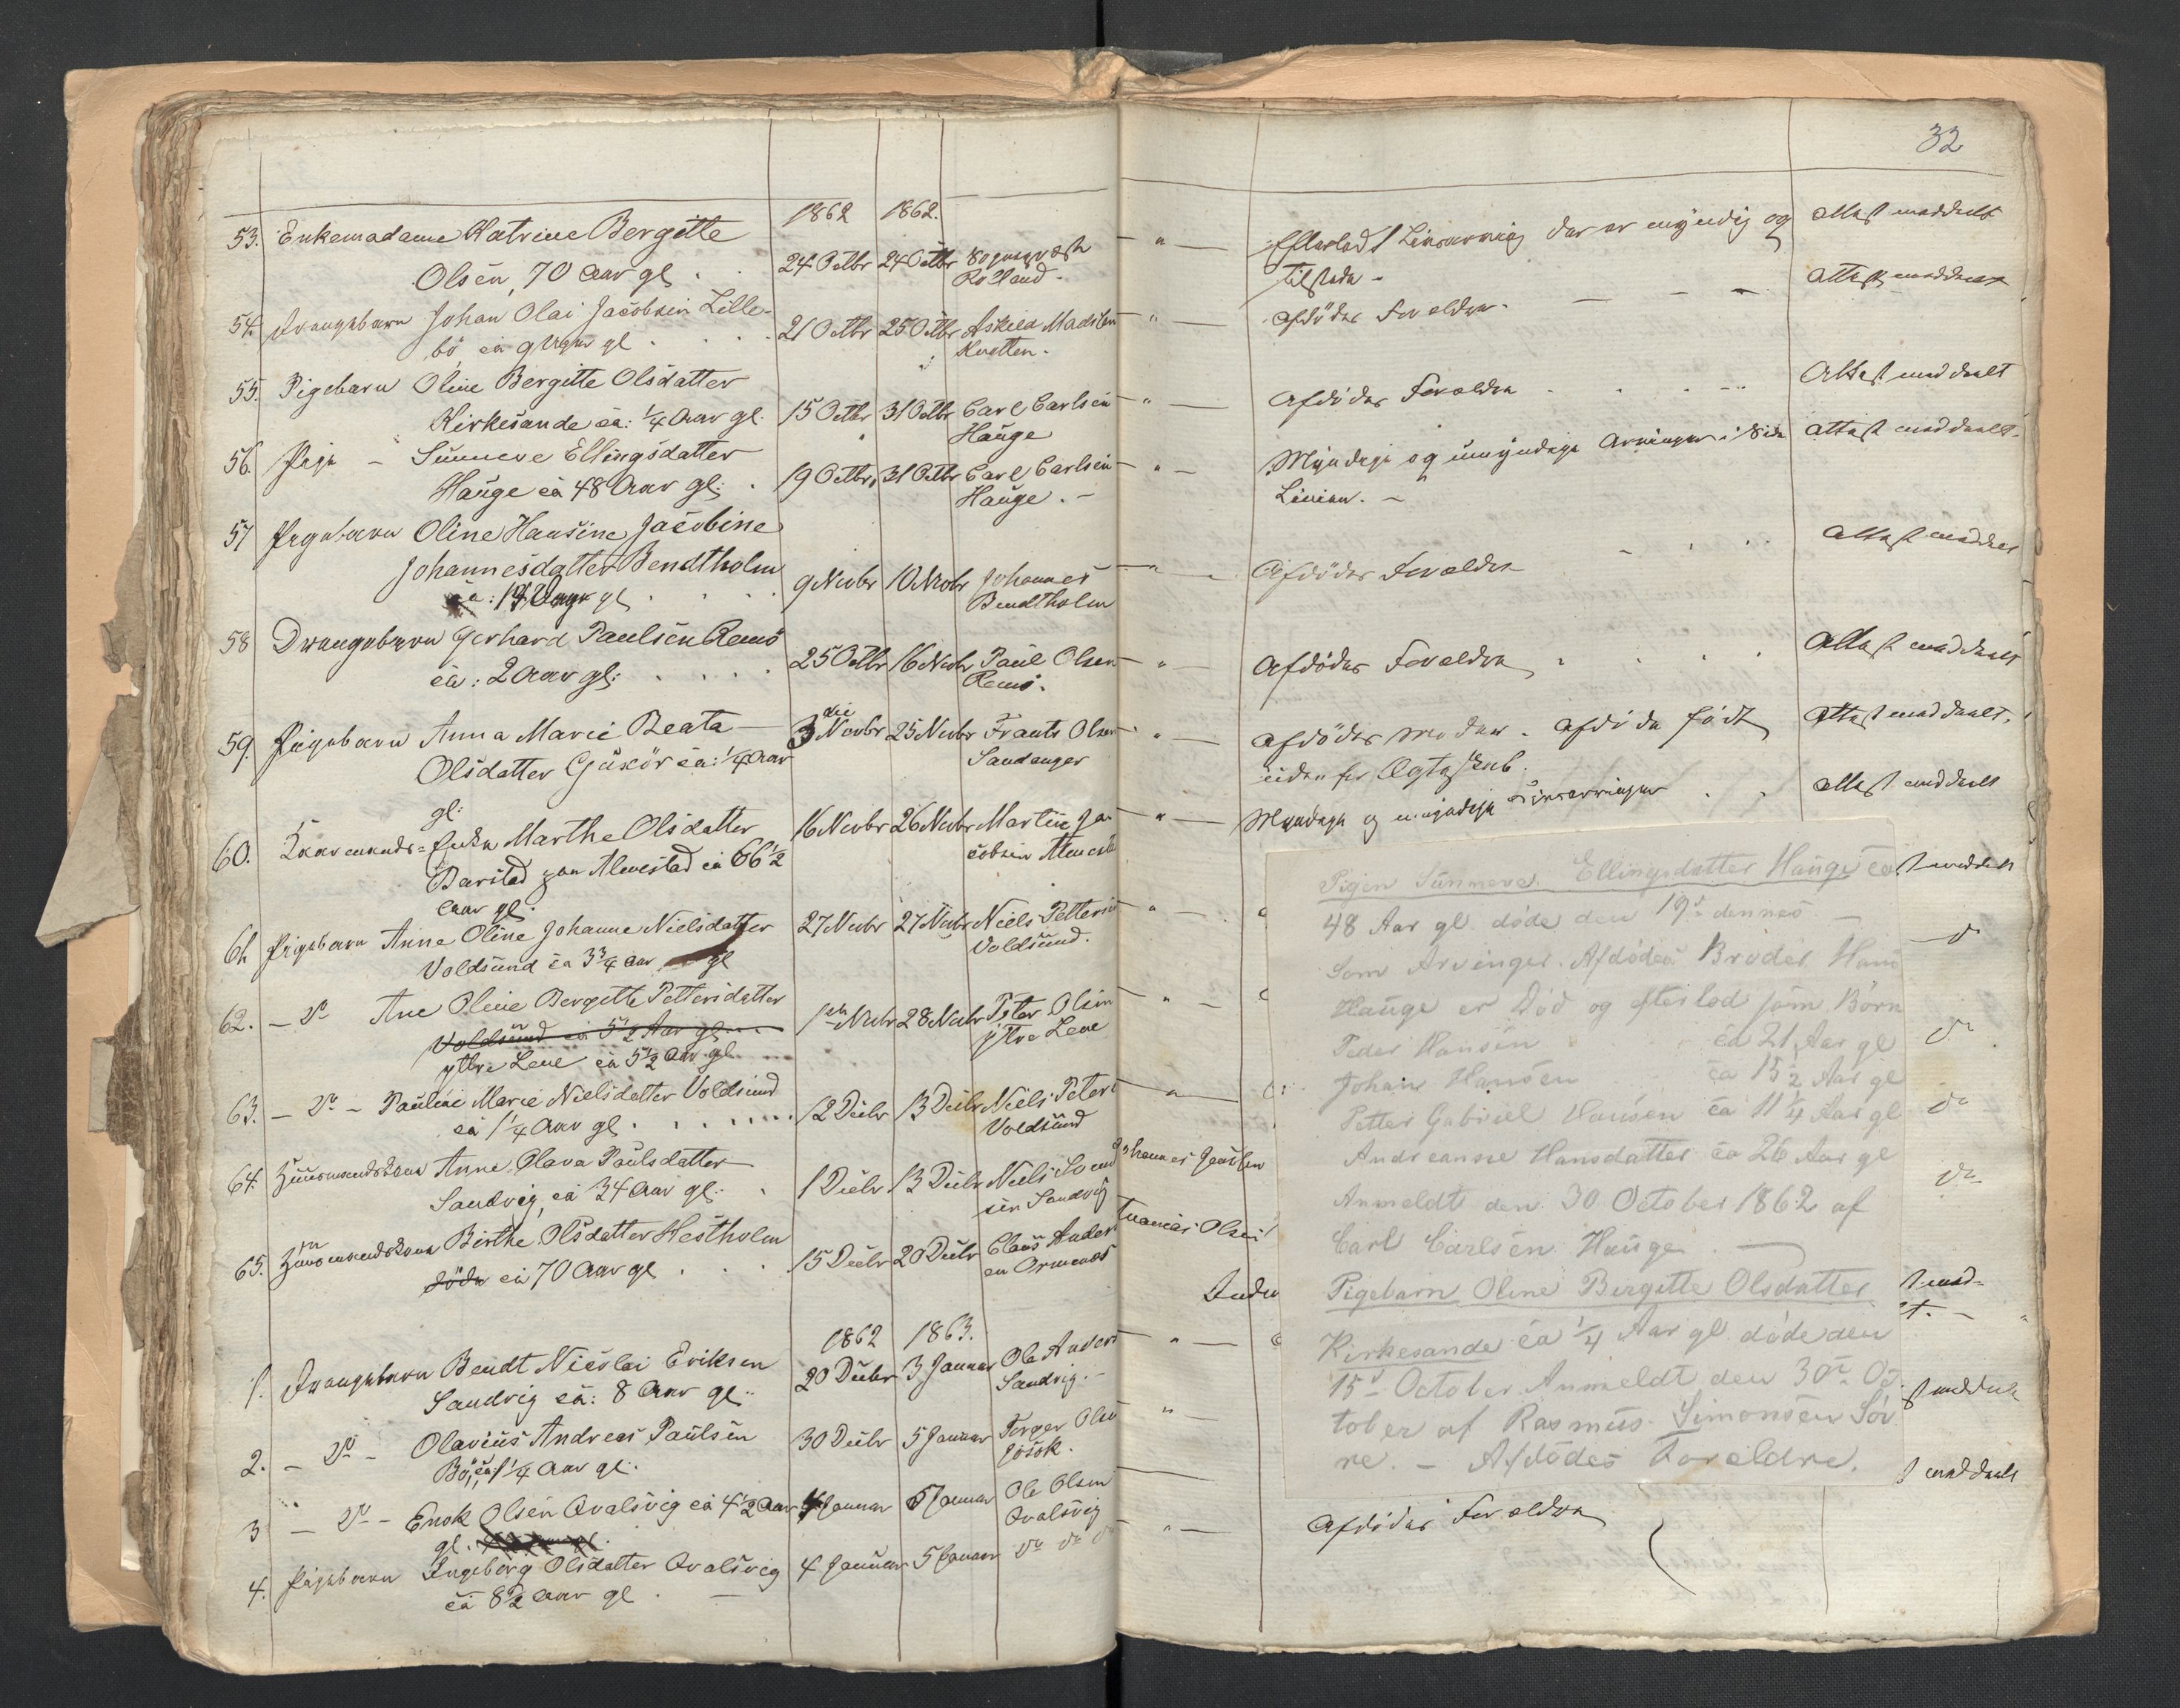 32
1862 1862.
53. Enkemadame Katrine Bergitte
Olsen, 70 Aar gl. 24 Octbr 24 Octbr
Rolland.
Efterladt Livsarving der er myndig og
tilstede -
Attest meddelt
54. Drengebarn Johan Olai Jacobsen Lille-
bö, ca 9 gl. 21 Octbr 25 Octbr Askild Madsen
Kvetten.
Afdödes Forældre.
Attest meddelt
55. Pigebarn Oline Bergitte Olsdatter
Kirkesande ca: 1/4 Aar gl. 15 Octbr 31 Octbr Carl Carlsen
Hauge
Afdödes Forældre
Attest meddeelt
56. Pige - Sunneve Ellingsdatter
Hauge ca 48 Aar gl: 19 Octbr. 31 Octbr Carl Carlsen
Hauge. -
Myndige og umyndige Arvinger i Side
Linien. -
Attest meddeelt.
57 Pigebarn Oline Hansine Jacobine
Johannesdatter Bendtholm
ca: gl 9 Novbr 10 Novbr Johannes
Bendtholm
Afdödes Forældre
Attest meddelt
58 Drengebarn Gerhard Paulsen Remö
ca: 2 Aar gl: 25 Octbr 16 Novbr Paul Olsen
Remö.
Afdödes Forældre
Attest meddeelt
59. Pigebarn Anna Marie Beata
Olsdatter Gjuskör ca: 1/4 Aar
gl:
3die Novbr 25 Novbr Frants Olsen
Sandanger
Afdödes Moder. Afdöde födt
uden for Ægteskab.
Attest meddeelt.
60. Enke Marthe Olsdatter
Barstad paa Almestad ca 66 1/2
Aar gl.
16 Novbr 26 Novbr Martin Ja-
cobsen
Myndige og umyndige Livsarvinger
Attest meddeelt
61. Pigebarn Anne Oline Johanne Nielsdatter
Voldsund ca 3 3/4 Aar gl
27 Novbr 27 Novbr Niels Pettersen
Voldsund.
62. - Do Ane Oline Bergitte Pettersdatter
Voldsund ca 5 1/2 Aar gl
yttre Lene ca 5 1/2 Aar gl
1ste Novbr 28 Novbr Peter Olsen
ytre Lene
63. - Do - Pauline Marie Nielsdatter Voldsund
ca 1 1/4 Aar gl. 12 Decbr 13 Decbr Niels Peter
Voldsund
64. Huusmandskone Anne Olava Paulsdatter
Sandvig, ca 34 Aar gl. 1 Decbr 13 Decbr Niels
sen Sandvig
65. Huusmandskone Birthe Olsdatter Hestholm
döde ca 70 Aar gl 15 Decbr 20 Decbr Claus Ander
en Ormenes
1862 1863.
1. Drengebarn Bendt Nicolai Eriksen
Sandvig ca: 8 Aar gl: 20 Decbr 3 Januar Ole Anders
Sandvig. -
2. - Do - Olavius Andreas Paulsen
Bö, ca 1 1/4 Aar gl. 30 Decbr 5 Januar Torger Olse
Josok.
3 - Do - Enok Olsen Qvalsvig ca 4 1/2 Aar
gl. 4 Januar 5 Januar Ole Olsen
Qvalsvig
4. Pigebarn Ingeborg Olsdatter Qvalsvig
ca 8 1/2 Aar gl. 4 Januar 5 Januar Do Do
Afdödes Forældre
Pigen Sunneve Ellingsdatter Hauge ca
48 Aar gl. döde den 19de dennes
Som Arvinger. Afdödes Broder Hans
Hauge er Död og efterlod som Börn
Peder Hansen ca 21 Aar gl
Johan Hansen ca 15 1/2 Aar gl
Petter Gabriel Hansen ca 11 1/4 Aar gl
Andreanse Hansdatter ca 26 Aar gl
Anmeldt den 30 October 1862 af
Carl Carlsen Hauge
Pigebarn Oline Bergitte Olsdatter
Kirkesande ca 1/4 Aar gl. döde den
15de October Anmeldt den 30te Oc-
tober af Rasmus Simonsen Sör
re. - Afdödes Forældre.